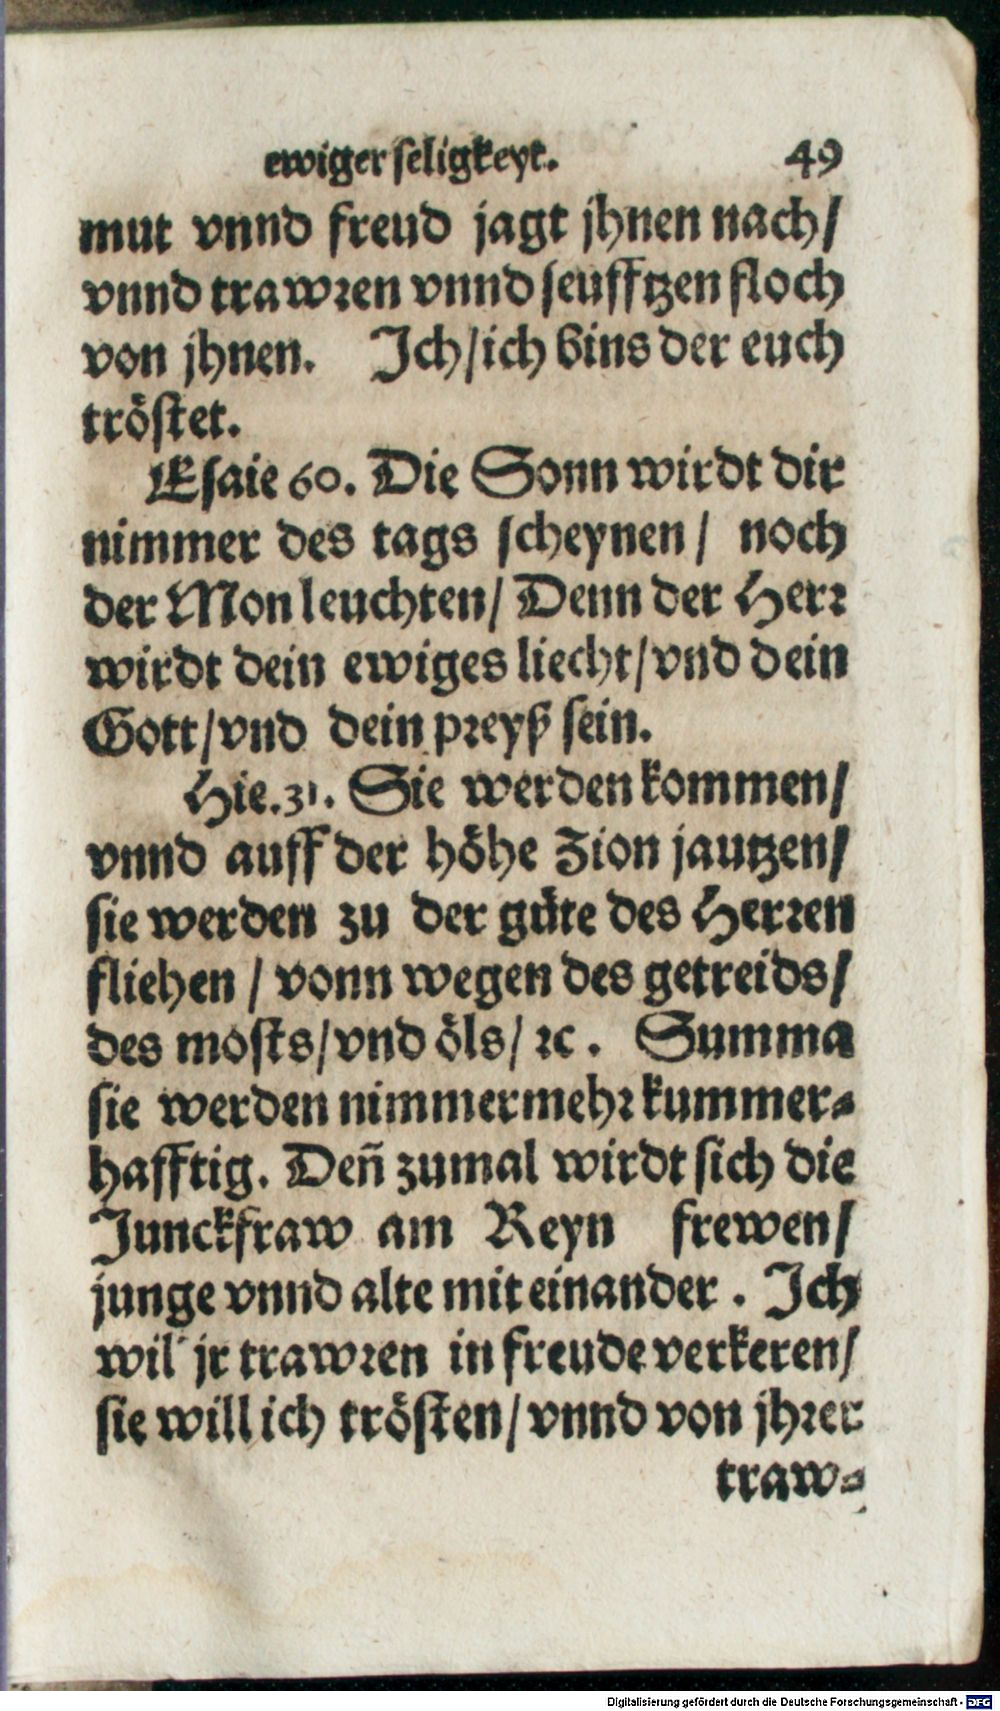 ewiger seligkeyt. 49
mut vnnd freud jagt jhnen nach/
vnnd trawren vnnd seufftzen floch
von jhnen. Ich/ich bins der euch
tröstet.
Esaie 60. Die Sonn wirdt dir
nimmer des tags scheynen/ noch
der Mon leuchten/ Denn der Herr
wirdt dein ewiges liecht/vnd dein
Gott/vnd dein preyß sein.
Hie.31. Sie werden kommen/
vnnd auff der höhe Zion jautzen/
sie werden zu der güte des Herren
fliehen / vonn wegen des getreids/
des mosts/vnd öls/ ꝛc. Summa
sie werden nimmermehr kummer-
hafftig. Deñ zumal wirdt sich die
Junckfraw am Reyn frewen/
junge vnnd alte mit einander. Ich
wil jr trawren in freude verkeren/
sie will ich trösten/vnnd von jhrer
traw-
Digitalisierung gefördert durch die Deutsche Forschungsgemeinschaft - DFG